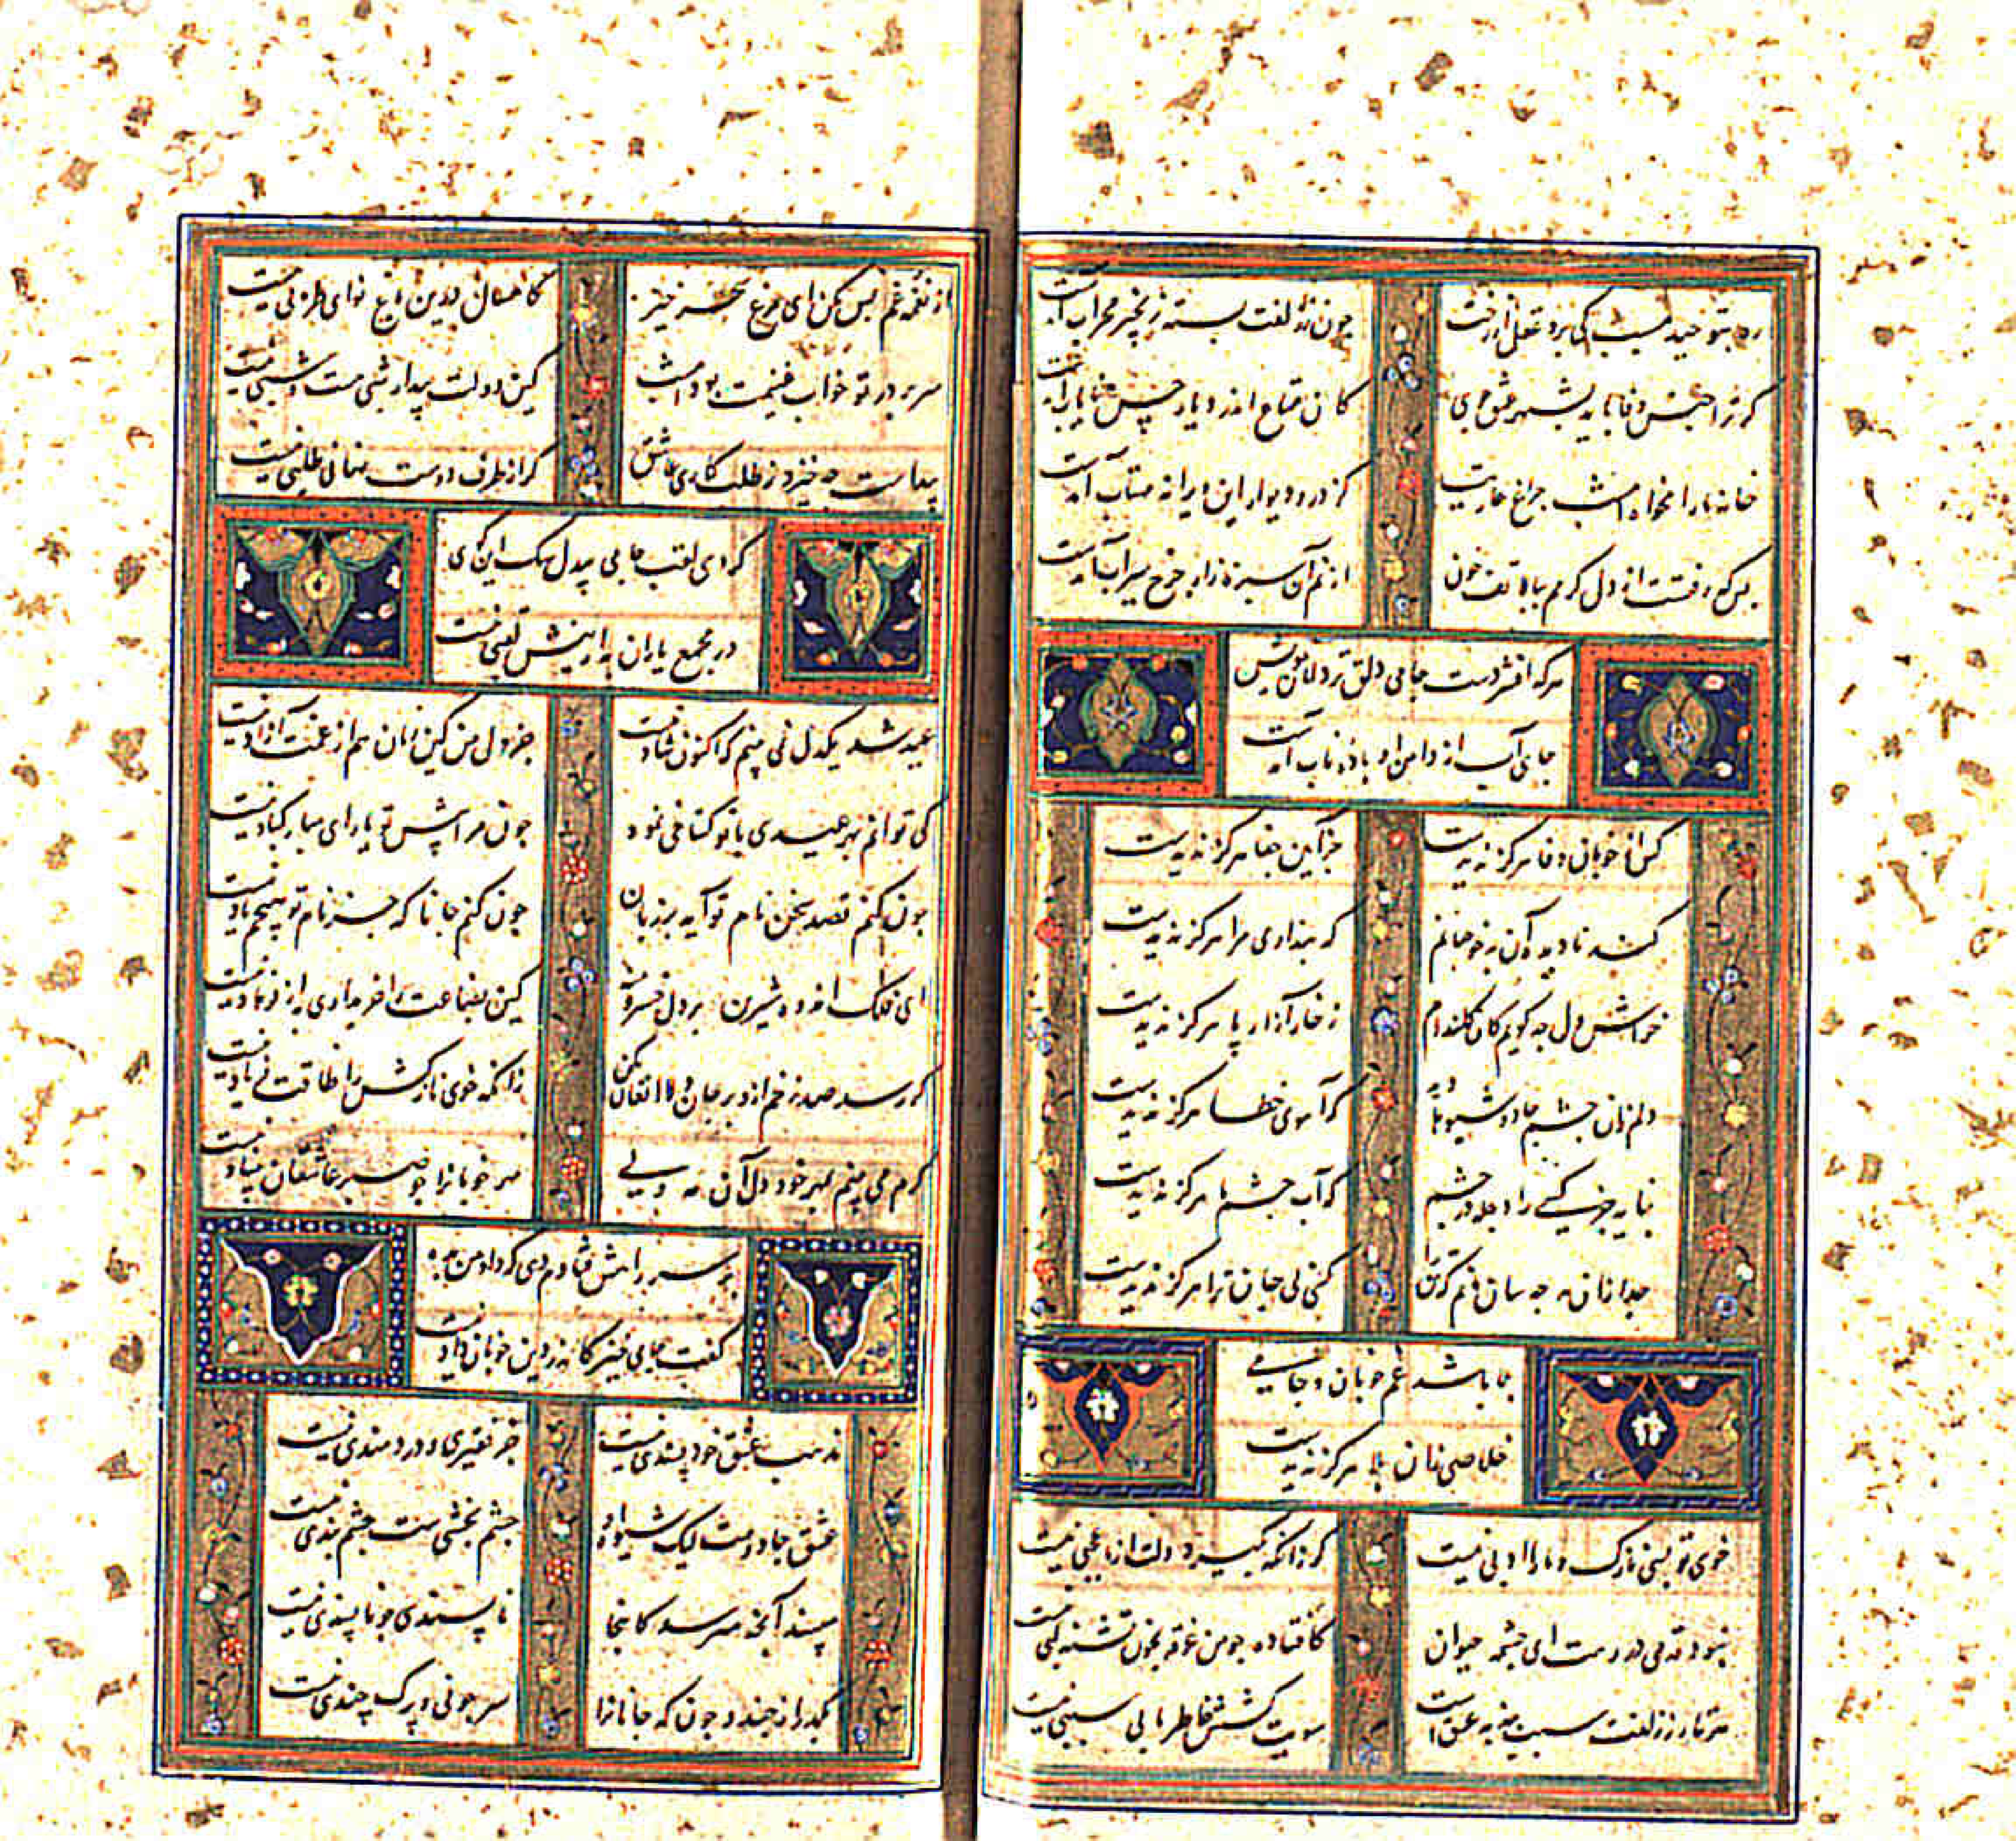 کرترا جنس وفا باید بشهر عشق جوی
کان متاع اندر دیار حسن نایاب آمدست
خانه ما را مخواه امشب چراغ عاریت
کز در و دیوار این ویرانه مهتاب آمدست
بس که رفتست از دل کرمم ببالا تف خون
از نم آن سبزه زار چرخ سیراب آمدست
هر که افشردست جامی دلق تردامان خویش
جای آب از دامن او باده ناب آمدست
کس از خوبان وفا هرکز ندیدست
جز آیین جفا هرکز ندیدست
کند نادیده آن بدخو چنانم
که پنداری مرا هرکز ندیدست
خراش دل چه کویم کان کل اندام
ز خار آزار پا هرکز ندیدست
دلم زان چشم جادو شیوها دید
کز آهوی خطا هرکز ندیدست
نیاید جز کسی را دجله در چشم
که آب چشم ما هرکز ندیدست
جدا زان مه چه سان مانم که کس
کسی بی جان ترا هرکز ندیدست
بلا باشد غم خوبان و جامی
خلاصی زان بلا هرکز ندیدست
خوی تو بسی نازک و ما را ادبی نیست
کر زانکه بکیرد دلت از ما عجبی نیست
نبود قدمی در رهت ای چشمه حیوان
کافتاده چو من غرقه بخون تشنه لبی نیست
هر تار ز زلفت سببیه
سویت کشش خاطر ما بی سببی نیست
از نغمه غم بس مکن ای مرغ سحرخیز
کامسال درین باغ نوای طربی نیست
سر بر در تو خواب غنیمت بود امشب
کین دولت بیدار شبی هست و شبی نیست
پیداست چه خیزد ز طلب کاری عاشق
کر از طرف دوست نهانی طلبی نیست
کردی لقب جامی بیدل سک این کوی
در مجمع یاران به ازینش لقبی نیست
عید شد یک دل نمی بینم که اکنون شاد نیست
جز دل من کین زمان هم از غمت آزاد نیست
کی توانم بهر عیدی با تو کستاخی نمود
چون مرا پیش تو یارای مبارکباد نیست
چون کنم قصد سخن نام تو آید بر زبان
چون کنم جانا که جز نام تو هیچم یاد نیست
ای فلک اندوه شیرین بر دل خسرو منه
کین بضاعت را خریداری به از فرهاد نیست
کر رسد صد زخم ازو بر جان دلا افغان مکن
زانکه خوی نازکش را طاقت فریاد نیست
کرم می بینم بمهر خود دل آن مه ولی
مهر خوبان را چو صبر عاشقان بنیاد نیست
بر سر راهش فتادم دی که داد من بده
کفت جامی خیز کاندر دین خوبان داد نیست
مذهب عشق خودپسندی نیست
جز فقیری و دردمندی نیست
عشق جادوست لیک شیوه او
چشم بخشی ست چشم بندی نیست
بپسند آنچه میرسد کاینجا
ناپسندی چو ناپسندی نیست
بکذر از چند و چون که جانان را
سر چونی و برک چندی نیست